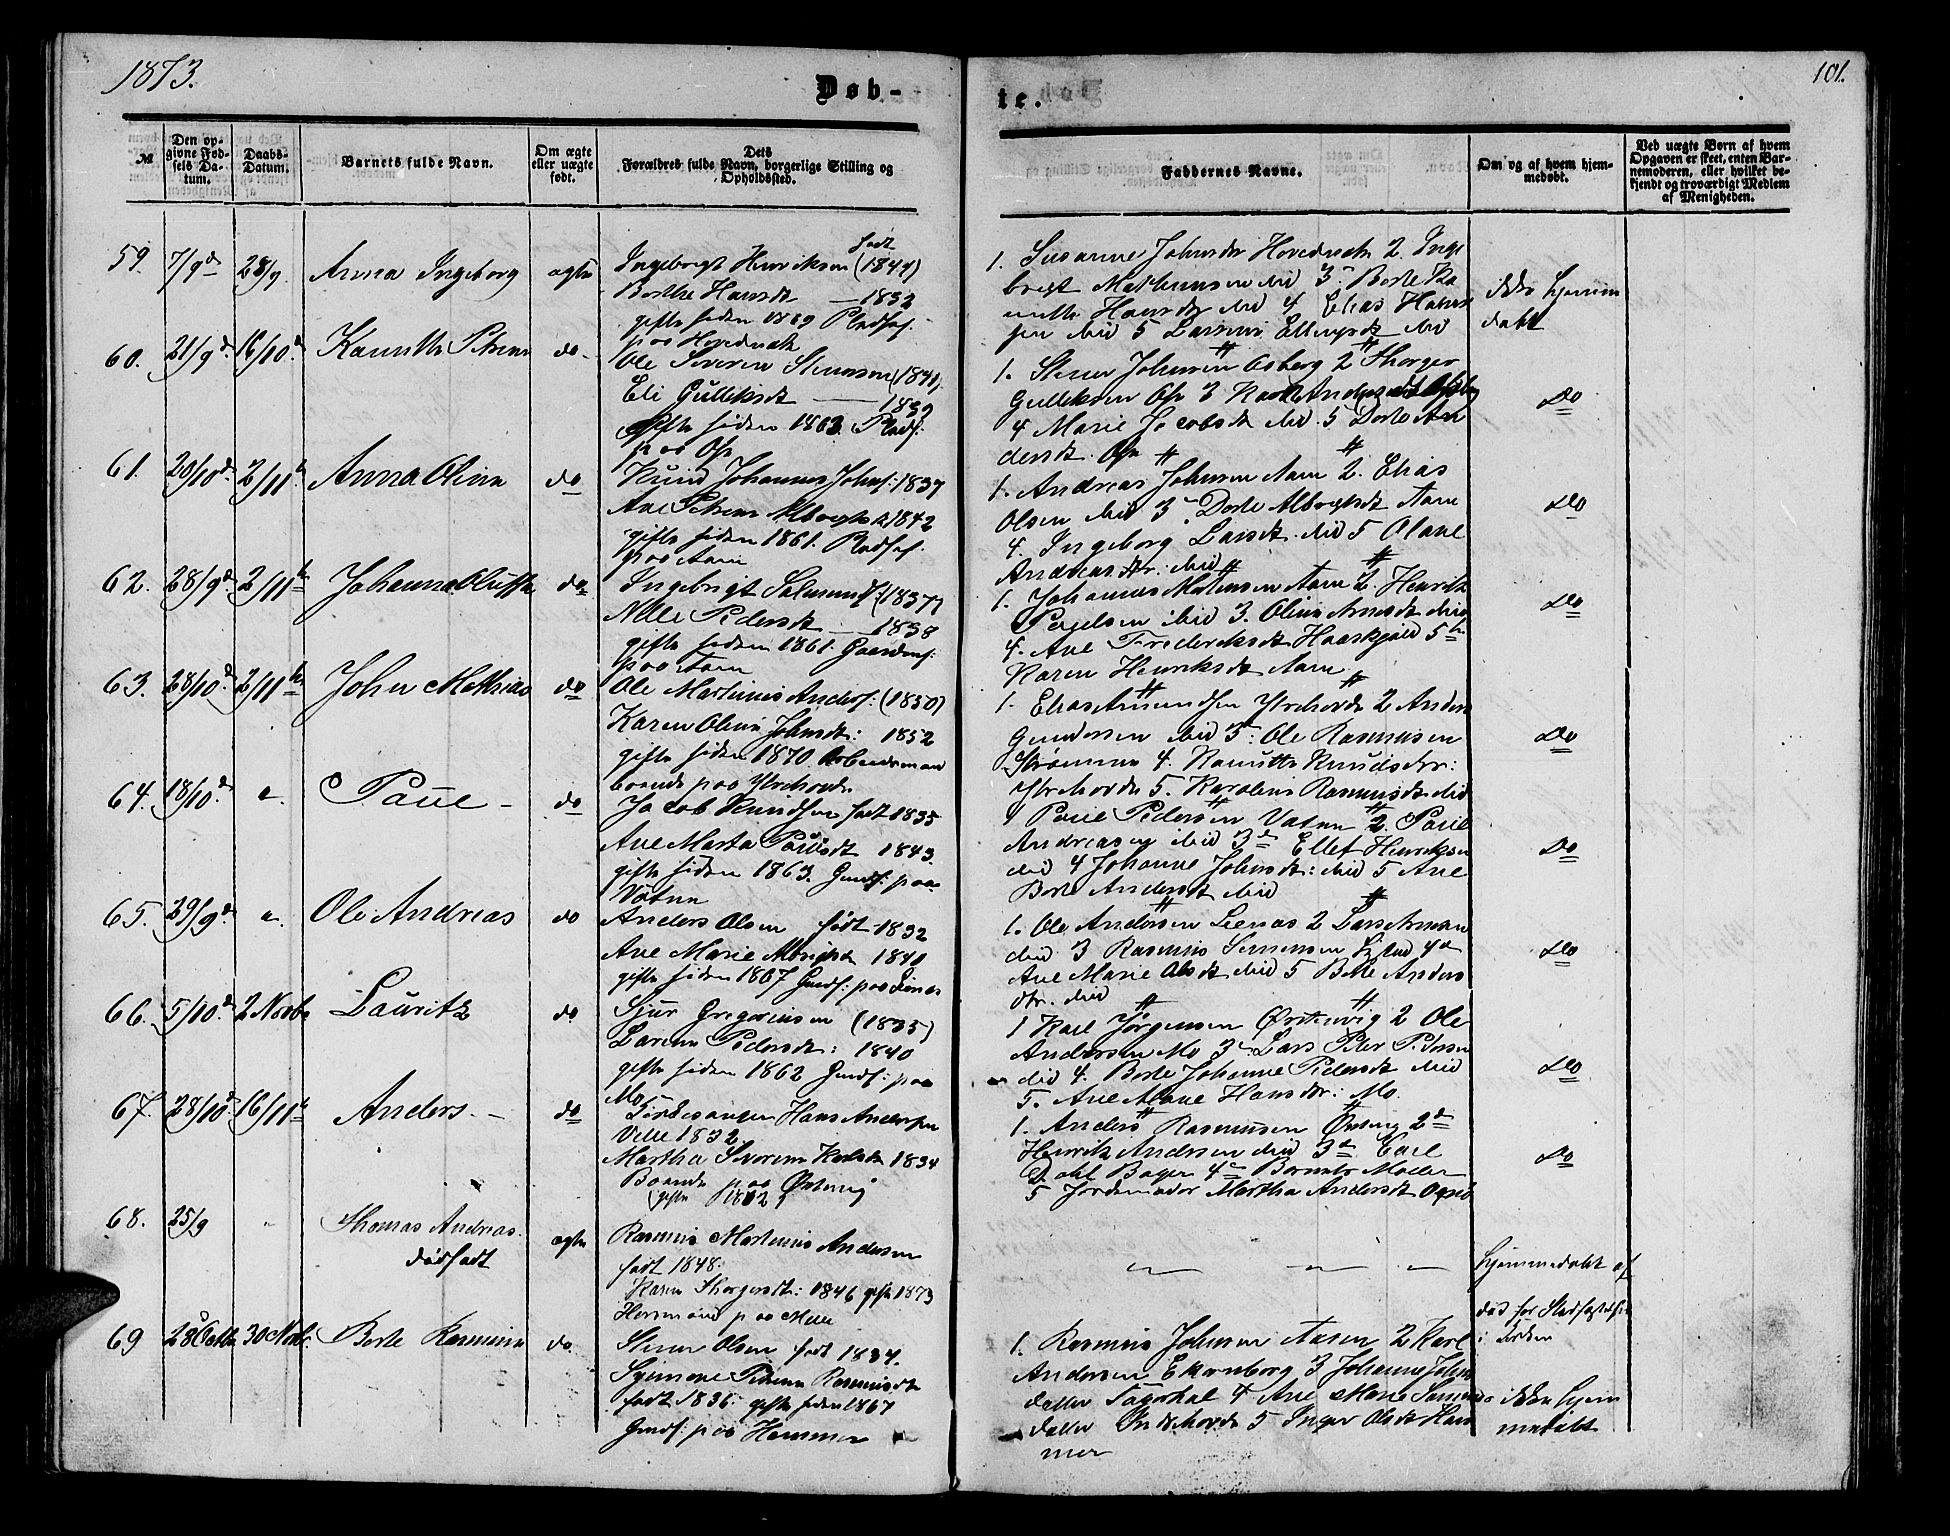 1873.
Døb-
te.
101.
№
Den op-
givne Fød-
sels Da-
tum.
Daabs-
Datum.
Barnets fulde Navn.
Om ægte
eller uægte
født.
Dets
Forældres fulde Navn, borgerlige Stilling og
Opholdssted.
Faddernes Navne.
Om og af hvem hjem-
medøbt.
Ved uægte Børn af hvem
Opgaven er skeet, enten Bar-
nemoderen, eller hvilket be-
kjendt og troværdigt Medlem
af Menigheden.
59. 7/9 28/9 Anna Ingeborg ægte
født
Ingebrigt Henriksen (1844)
Berthe Hansdt — 1833
gifte siden 1869 Pladsf.
paa Hovednak
1. Susanne Johnsdr Hovednak 2 Inge
brigt Mathiassen ibid 3 Berte Ka
nutte Hansdr ibid 4 Elias Hans
sen ibid 5 Lassine Ellingsdt ibid
ikke hjemme
døbt
60. 21/9 16/10 Kanutte Petrine do
Ole Severin Steinsen (1840)
Eli Gulliksdt — 1839
gifte siden 1863. Pladsf.
paa Ose
1. Steiner Johnsen Aaberg 2 Thorger
Gulliksen Ose 3
4 Marie Jacobsdt ibid. 5 Dorte An
dersdt. Ose
Do
61. 20/10 2/11 Anna Oline do
Knud Johannes Johnsf: 1837
Ane Petrine Albregtsdt 1842
gifte siden 1861. Pladsf.
paa Aam
1. Andreas Johnsen Aam 2. Elias
Olsen ibid 3 Dorte Albregtsdt Aam
4. Ingeborg Larsdt. ibid 5 Olave
Andreasdtr: ibid
Do
62. 28/9 2/11 Johanna Oluffa do
Ingebrigt Salmunds: (1837)
Nille Pedersdt — 1838
gifte siden 1861. Gaardm:
paa Aam
1. Johannes Mathiasen Aam 2. Henrik
ibid 3. Oline Arnesdt ibid
4. Ane Frederiksdt Haaskjold 5
Karen Henriksdt Aam
Do
63. 28/10 2/11 John Mathias do
Ole Martinus Anders: (1850)
Karen Oline Johnsdt: 1852
gifte siden 1870 Arbeidsmand
boende paa Ytrehovde
1. Elias Amundsen Ytrehovde 2 Anders
Gundersen ibid 3: Ole Rasmusen
Strømme 4. Kanutte Knudsdtr:
Ytrehovde 5. Karoline Rasmusdt ibid
Do
64. 18/10 Paul do
Jacob Knudsen født 1835
Ane Marta Paulsdt 1843
gifte siden 1863. Gmdf: paa
Vatne
1 Paul Pedersen Vatne 2. Paul
Andreasen ibid 3 Ellef Henriksen
ibid 4 Johanne Johnsdt: ibid 5 Ane
Berte Andersdt ibid
Do
65. 29/9 Ole Andreas do
Anders Olsen født 1832
Ane Marie Albrigtsdt 1840
gifte siden 1867 Gmdf: paa
1. Ole Andersen 2
ibid 3 Rasmus 4
Ane Marie Olsdt ibid 5 Berte Anders
dtr. ibid
Do
66. 5/10 2 Novbr Lauritz do
Sjur Gregoriusen (1835)
Larine Pedersdt: 1840
gifte siden 1862 Gmdf: paa
Mo
1 Karl Jørgensen Ørstenvig 2 Ole
Andersen Mo 3 Lars Peter Pedersen
ibid 4. Berte Johanne Pedersdt ibid
5. Ane Marie Hansdtr: Mo.
Do
67. 28/10 16/11 Anders — do
Kirkesanger Hans Andersen
Velle 1832
Martha Severine Karlsdt 1834
Boende paa Ørstenvig
(gifte 1862)
1. Anders Rasmusen Ørstenvig 2
Henrik Andersen ibid 3 Carl
Dahl Bager 4 Barnets Moder
5 Jordemoder Martha Andersdt
Do
68. 25/9 Thomas Andreas.
dødfødt
ægte
Rasmus Martinus Andersen
født 1848.
Karen Thorgersdt: 1846 gifte 1873
paa Melle
hjemmedøbt af
død før Stadfæstelse
i Kirken
69 28 Octbr 30 Novbr. Berte Rasmine do.
Steiner Olsen født 1834.
Petrine Rasmusdt
født 1836. gifte siden 1867
Gmdf: paa Hammer
1. Rasmus Johnsen Aasen 2 Karl
Andersen Ekornberg 3 Johanne Johns
datter 4 Ane Marie
datter Indrehovde 5 Inger Olsdt Ham
mer
ikke hjem
medøbt